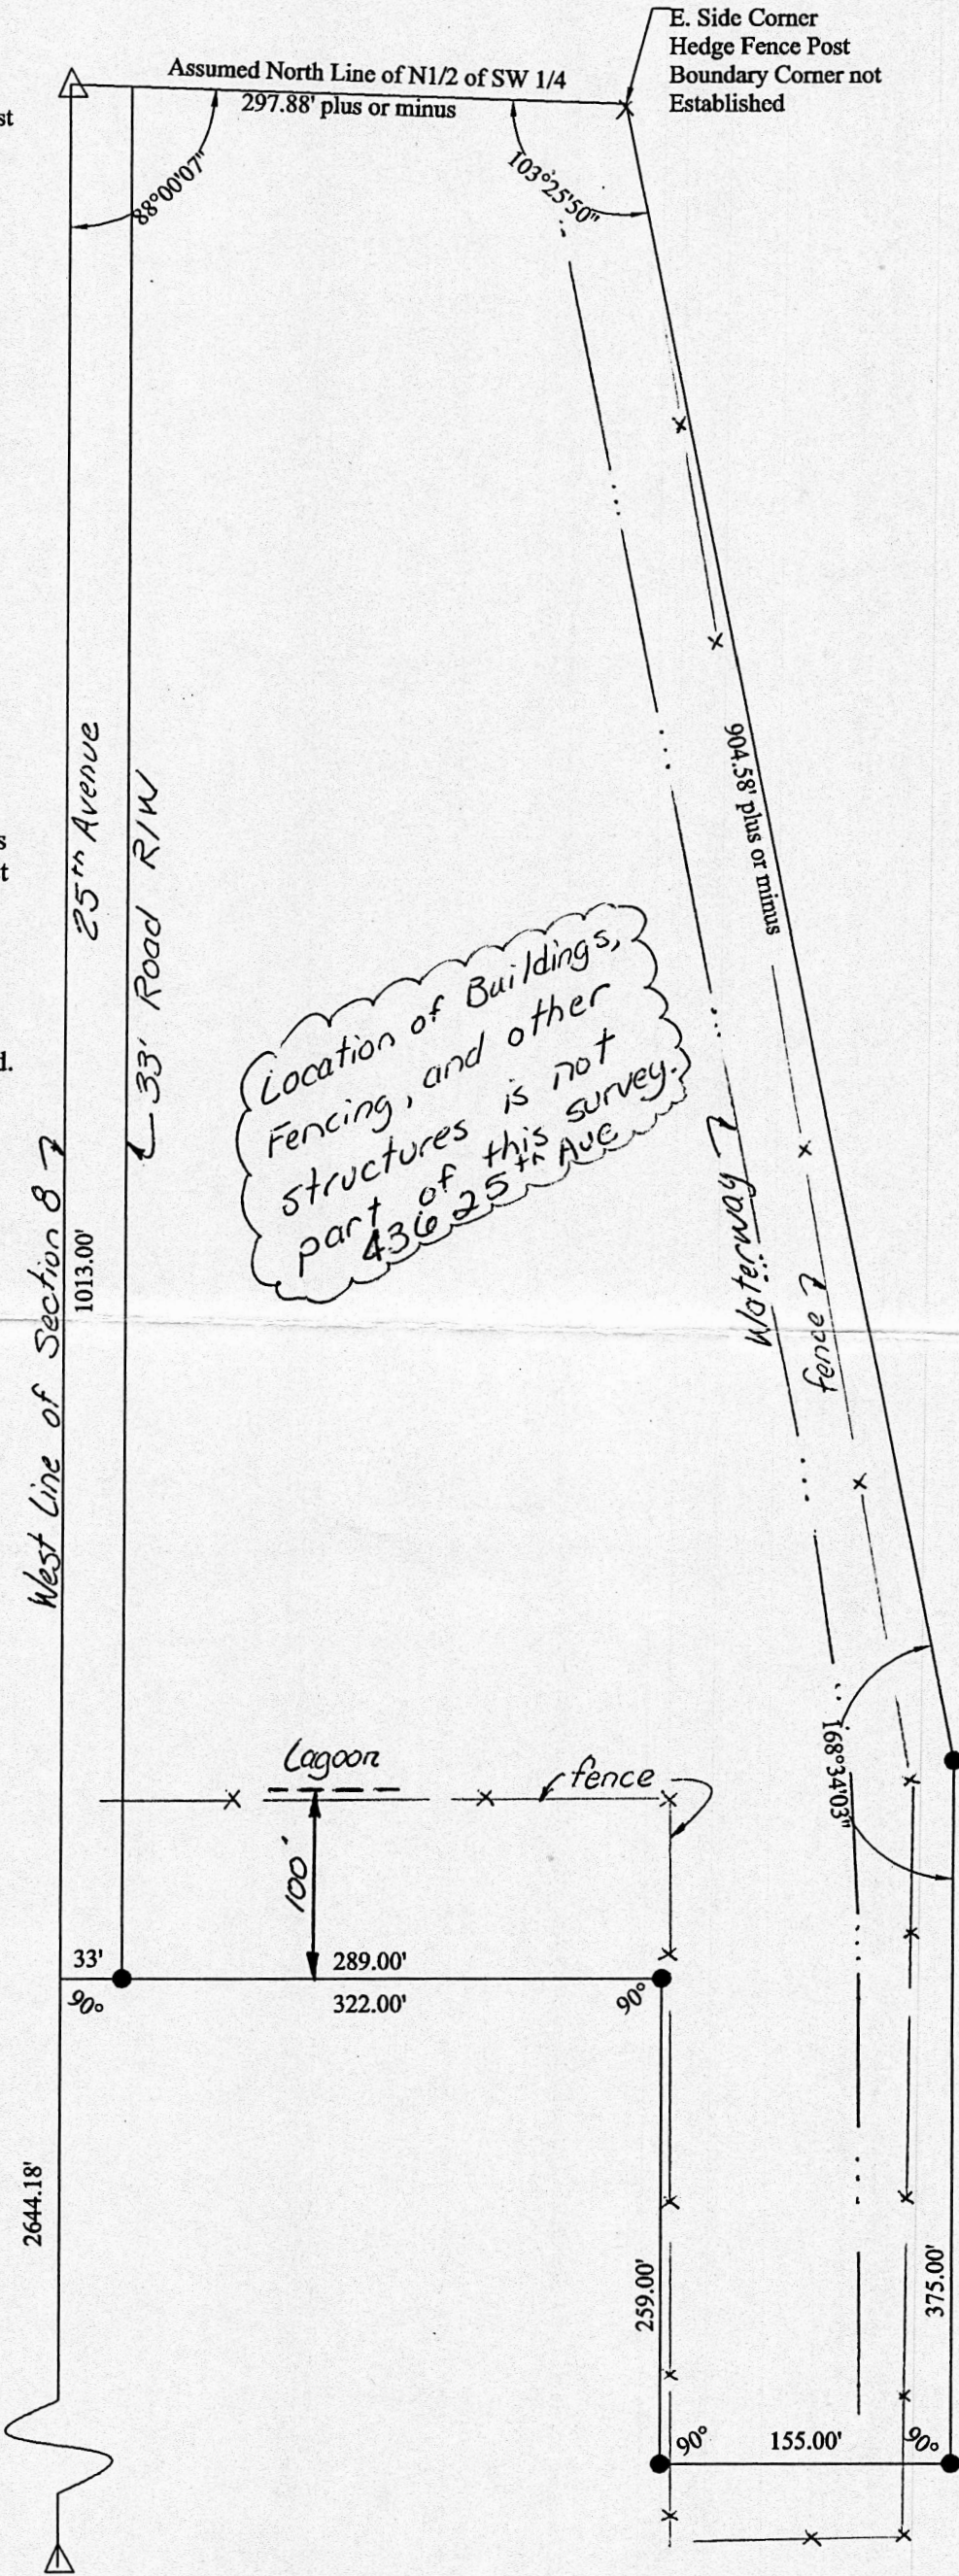 E. Side Corner
Hedge Fence Post
Boundary Corner not
Established
Assumed North Line of N1/2 of SW 1/4
297.88' plus or minus
st
88°00'07"
103°25'50"
25th Avenue
33' Road R/W
904.58' plus or minus
s
t
d.
Location of Buildings,
Fencing, and other
structures is not
part of this survey.
436 25th Ave
West Line of Section 8
1013.00'
Waterway
fence
Lagoon
fence
168°34'03"
100'
33'
289.00'
90°
322.00'
90°
2644.18'
259.00'
375.00'
90°
155.00'
90°